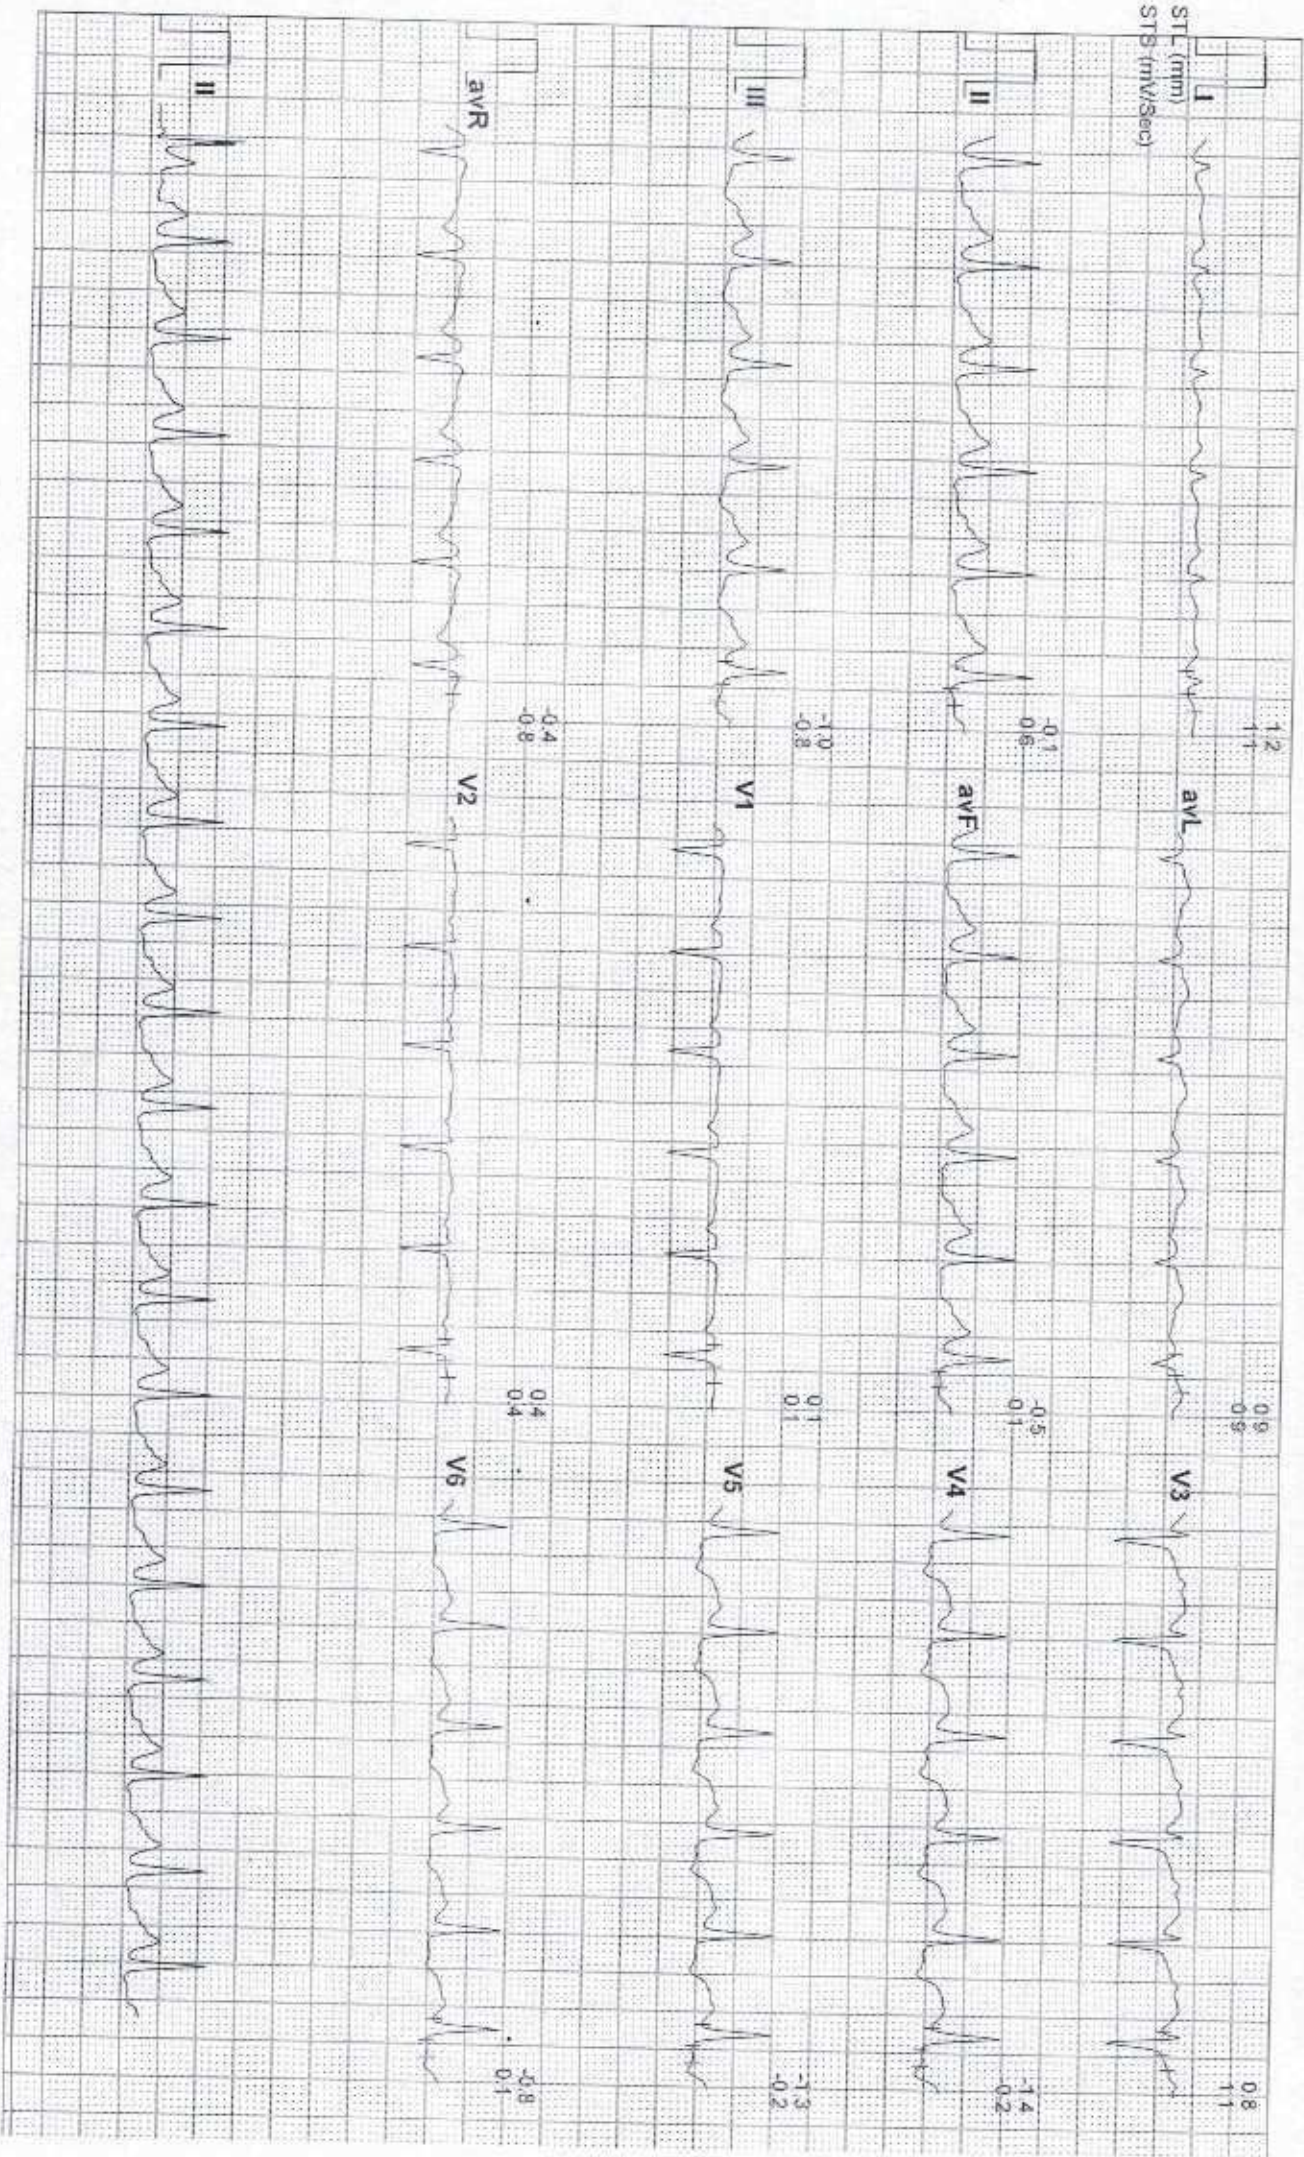 STL (mm)
STS (mV/Sec)
I
1.2
1.1
avL
0.9
0.9
V3
0.8
1.1
II
-0.1
0.6
avF
-0.5
0.1
V4
-1.4
-0.2
III
-1.0
-0.8
V1
0.1
0.1
V5
-1.3
-0.2
avR
-0.4
-0.8
V2
0.4
0.4
V6
-0.8
0.1
II